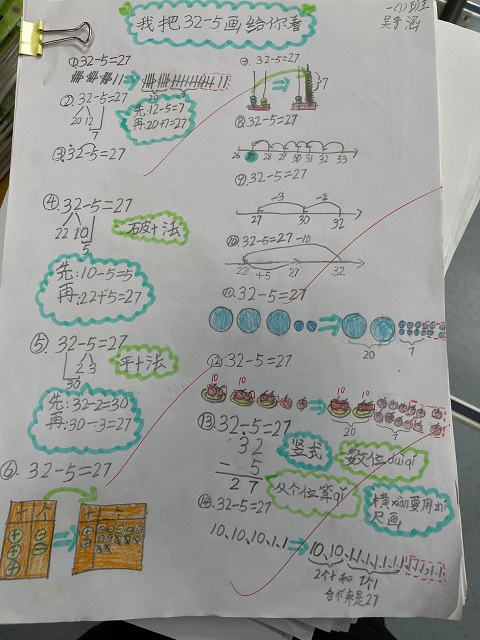 我把32-5画给你看
一(1)班
吴予涵
①32-5=27
②32-5=27
20 12
7
先:12-5=7
再:20+7=27
③32-5=27
④32-5=27
22 10
5
破十法
先:10-5=5
再:22+5=27
⑤32-5=27
2 3
30
平十法
先:32-2=30
再:30-3=27
⑥32-5=27
十 个
十 个
7
⑧32-5=27
26 27 28 29 30 31 32 33
⑨32-5=27
-3 -2
27 30 32
⑩32-5=27
-10
22 +5 27 32
⑪32-5=27
20 7
⑫32-5=27
10 10 10 10 10
20 7
⑬32-5=27
32
- 5
27
竖式
数位duiqi
从个位算qi
横xian要用
尺画
⑭32-5=27
10、10、10、1、1
10、10、1、1、1、1、1、1、1、1、1、1、1、1
2个十和7个1
合起来是27